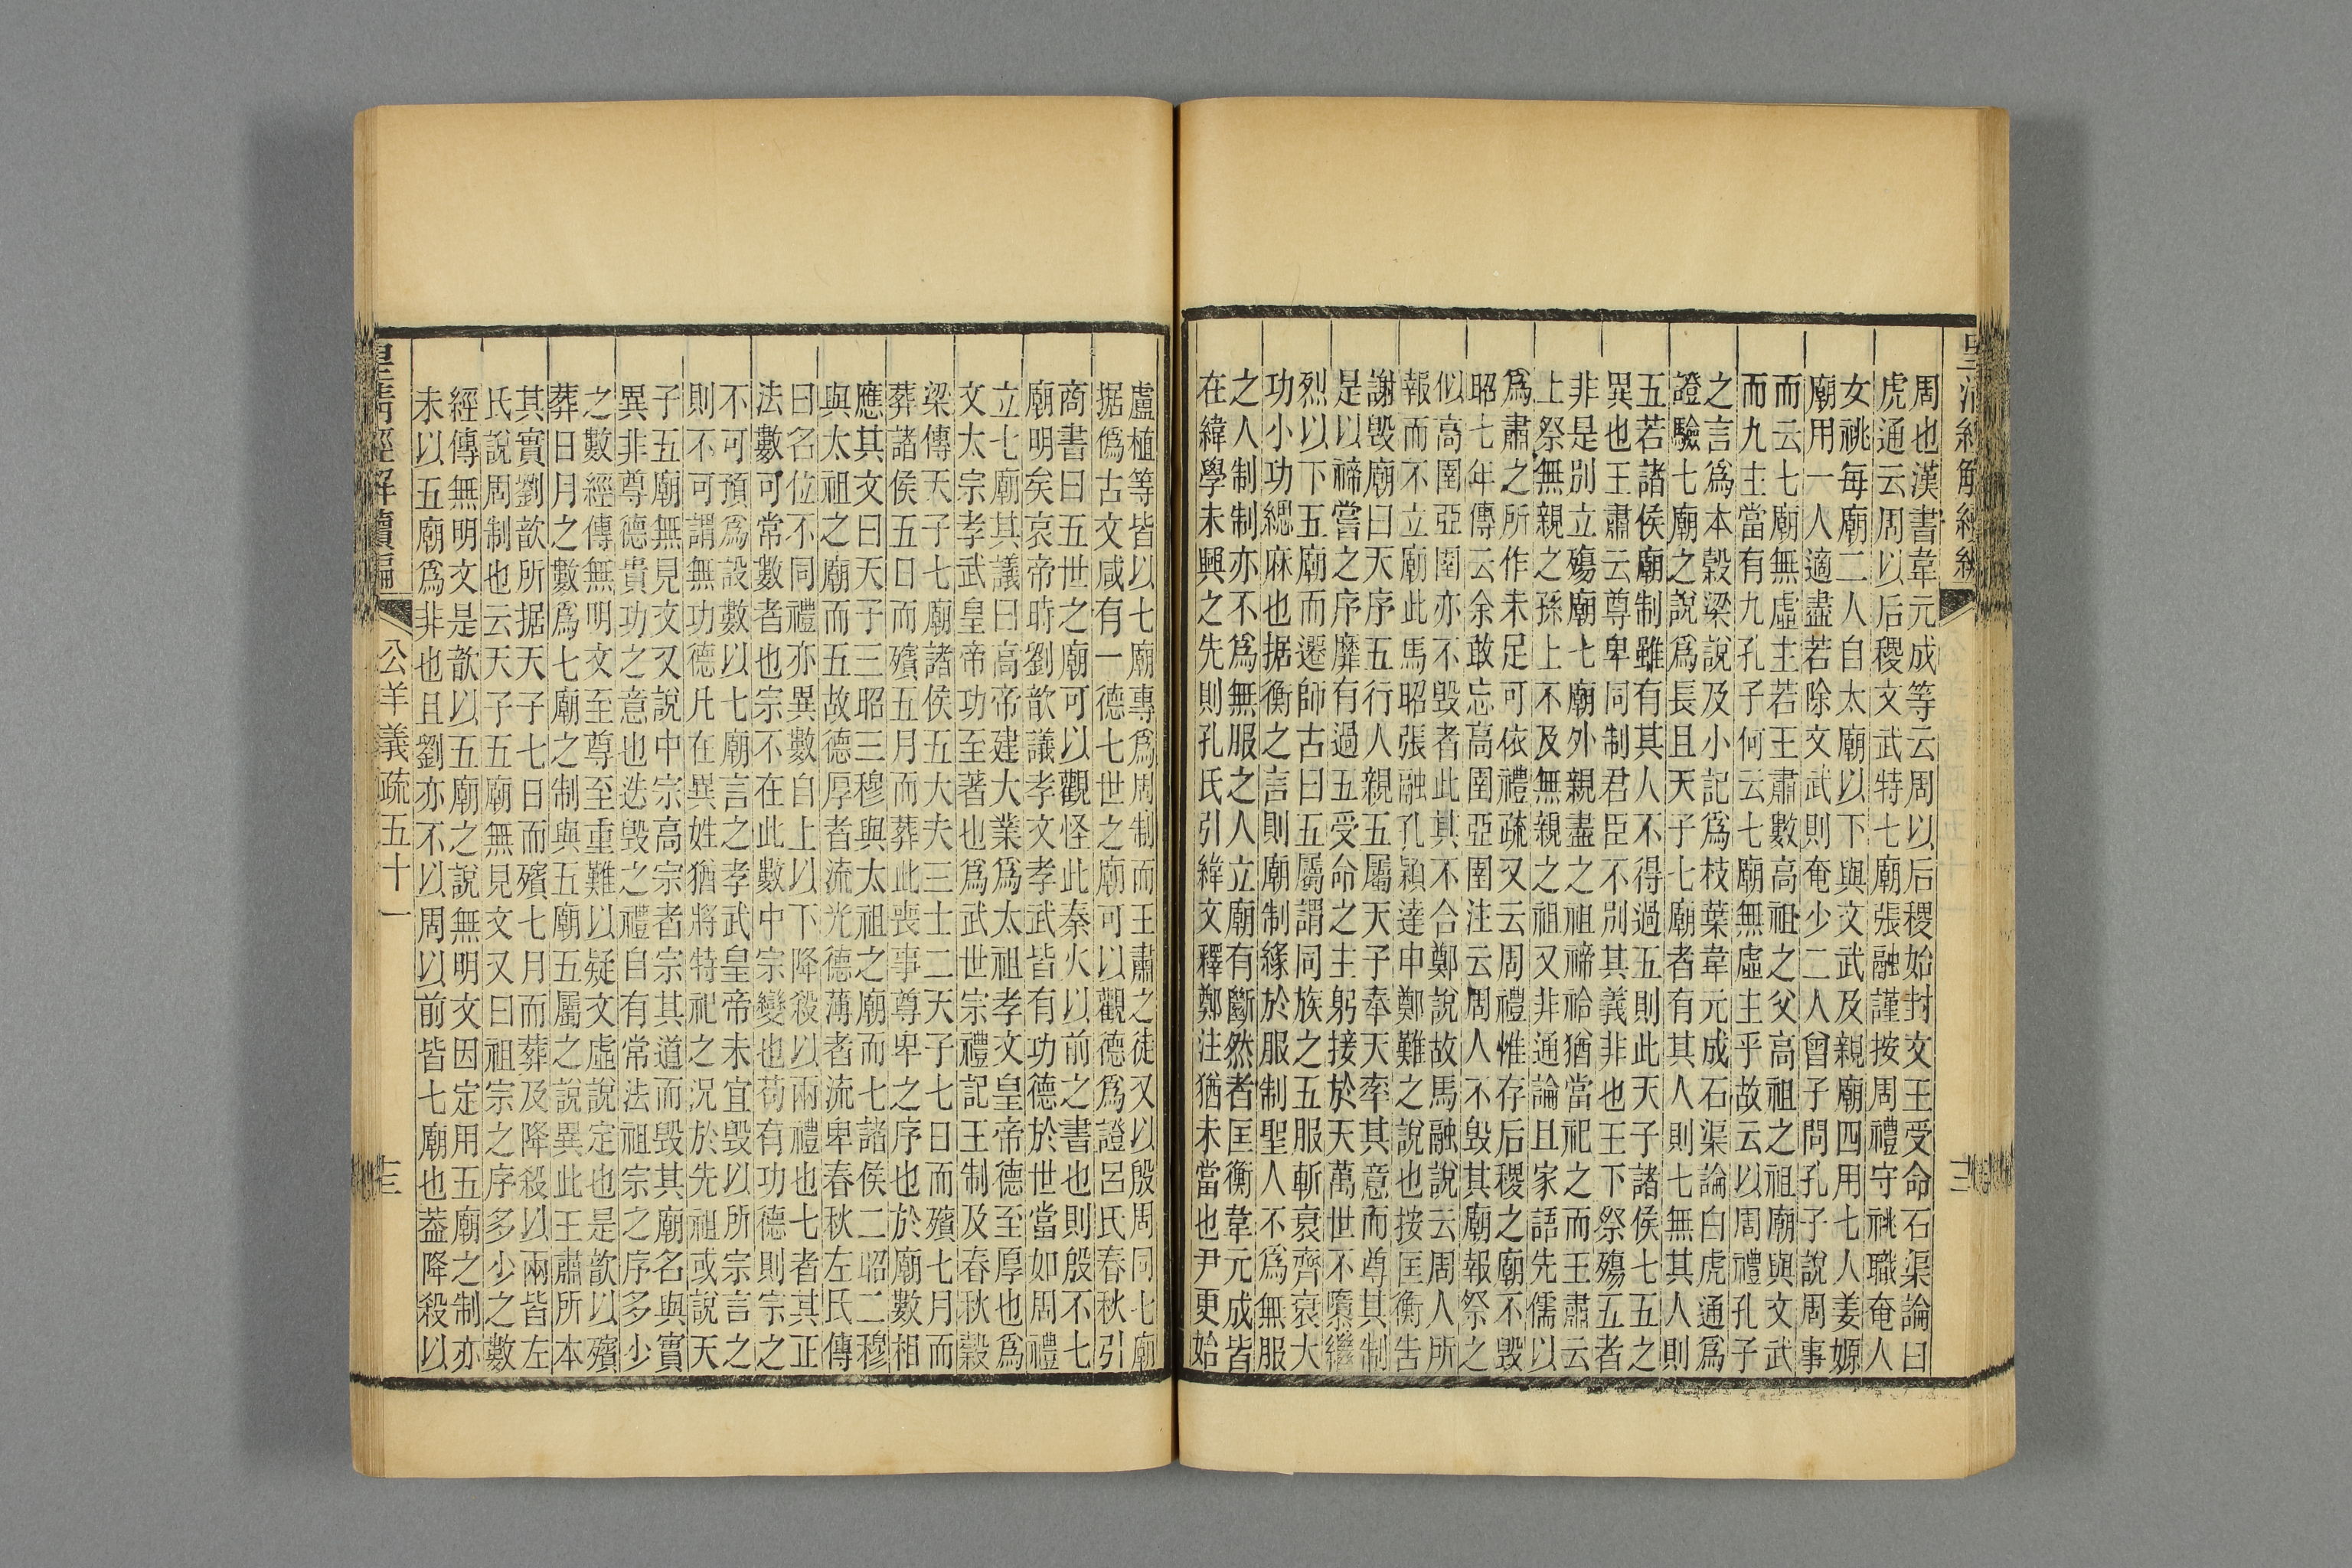 皇清經解續編
周也漢書韋元成等云周以后稷始封文王受命石渠論曰
虎通云周以后稷文武特七廟張融謹按周禮守祧職奄人
女祧每廟二人自太廟以下與文武及親廟四用七人姜嫄
廟用一人適盡若除文武則奄少二人曾子問孔子說周事
而云七廟無虛主若王肅數高祖之父高祖之祖廟與文武
而九主當有九孔子何云七廟無虛主乎故云以周禮孔子
之言爲本穀梁說及小記爲枝葉韋元成石渠論白虎通爲
證驗七廟之說爲長且天子七廟者有其人則七無其人則
五若諸侯廟制雖有其人不得過五則此天子諸侯七五之
異也王肅云尊卑同制君臣不別其義非也王下祭殤五者
非是別立殤廟七廟外親盡之祖禘祫猶當祀之而王肅云
上祭無親之孫上不及無親之祖又非通論且家語先儒以
爲肅之所作未足可依禮疏又云周禮惟存后稷之廟不毀
昭七年傳云余敢忘高圉亞圉注云周人不毀其廟報祭之
似高圉亞圉亦不毀者此其不合鄭說故馬融說云周人所
報而不立廟此馬昭張融孔穎達中鄭難之說也按匡衡告
謝毀廟曰天序五行人親五屬天子奉天率其意而尊其制
是以禘嘗之序靡有過五受命之主躬接於天萬世不墮繼
烈以下五廟而遷師古曰五屬謂同族之五服斬衰齊衰大
功小功緦麻也据衡之言則廟制緣於服制聖人不爲無服
之人制制亦不爲無服之人立廟有斷然者匡衡韋元成皆
在緯學未興之先則孔氏引緯文釋鄭注猶未當也尹更始
盧植等皆以七廟專爲周制而王肅之徒又以殷周同七廟
据僞古文咸有一德七世之廟可以觀德爲證呂氏春秋引
商書曰五世之廟可以觀怪此秦火以前之書也則殷不七
廟明矣哀帝時劉歆議孝文孝武皆有功德於世當如周禮
立七廟其議曰高帝建大業爲太祖孝文皇帝德至厚也爲
文太宗孝武皇帝功至著也爲武世宗禮記王制及春秋穀
梁傳天子七廟諸侯五大夫三士二天子七日而殯七月而
葬諸侯五日而殯五月而葬此喪事尊卑之序也於廟數相
應其文曰天子三昭三穆與太祖之廟而七諸侯二昭二穆
與太祖之廟而五故德厚者流光德薄者流卑春秋左氏傳
曰名位不同禮亦異數自上以下降殺以兩禮也七者其正
法數可常數者也宗不在此數中宗變也苟有功德則宗之
不可預爲設數以七廟言之孝武皇帝未宜毀以所宗言之
則不可謂無功德凡在異姓猶將特祀之況於先祖或說天
子五廟無見文又說中宗高宗者宗其道而毀其廟名與實
異非尊德貴功之意也迭毀之禮自有常法祖宗之序多少
之數經傳無明文至尊至重難以疑文虛說定也是歆以殯
葬日月之數爲七廟之制與五廟五屬之說異此王肅所本
其實劉歆所据天子七日而殯七月而葬及降殺以兩皆左
氏說周制也云天子五廟無見文又曰祖宗之序多少之數
經傳無明文是歆以五廟之說無明文因定用五廟之制亦
未以五廟爲非也且劉亦不以周以前皆七廟也葢降殺以
皇清經解續編
公羊義疏五十一